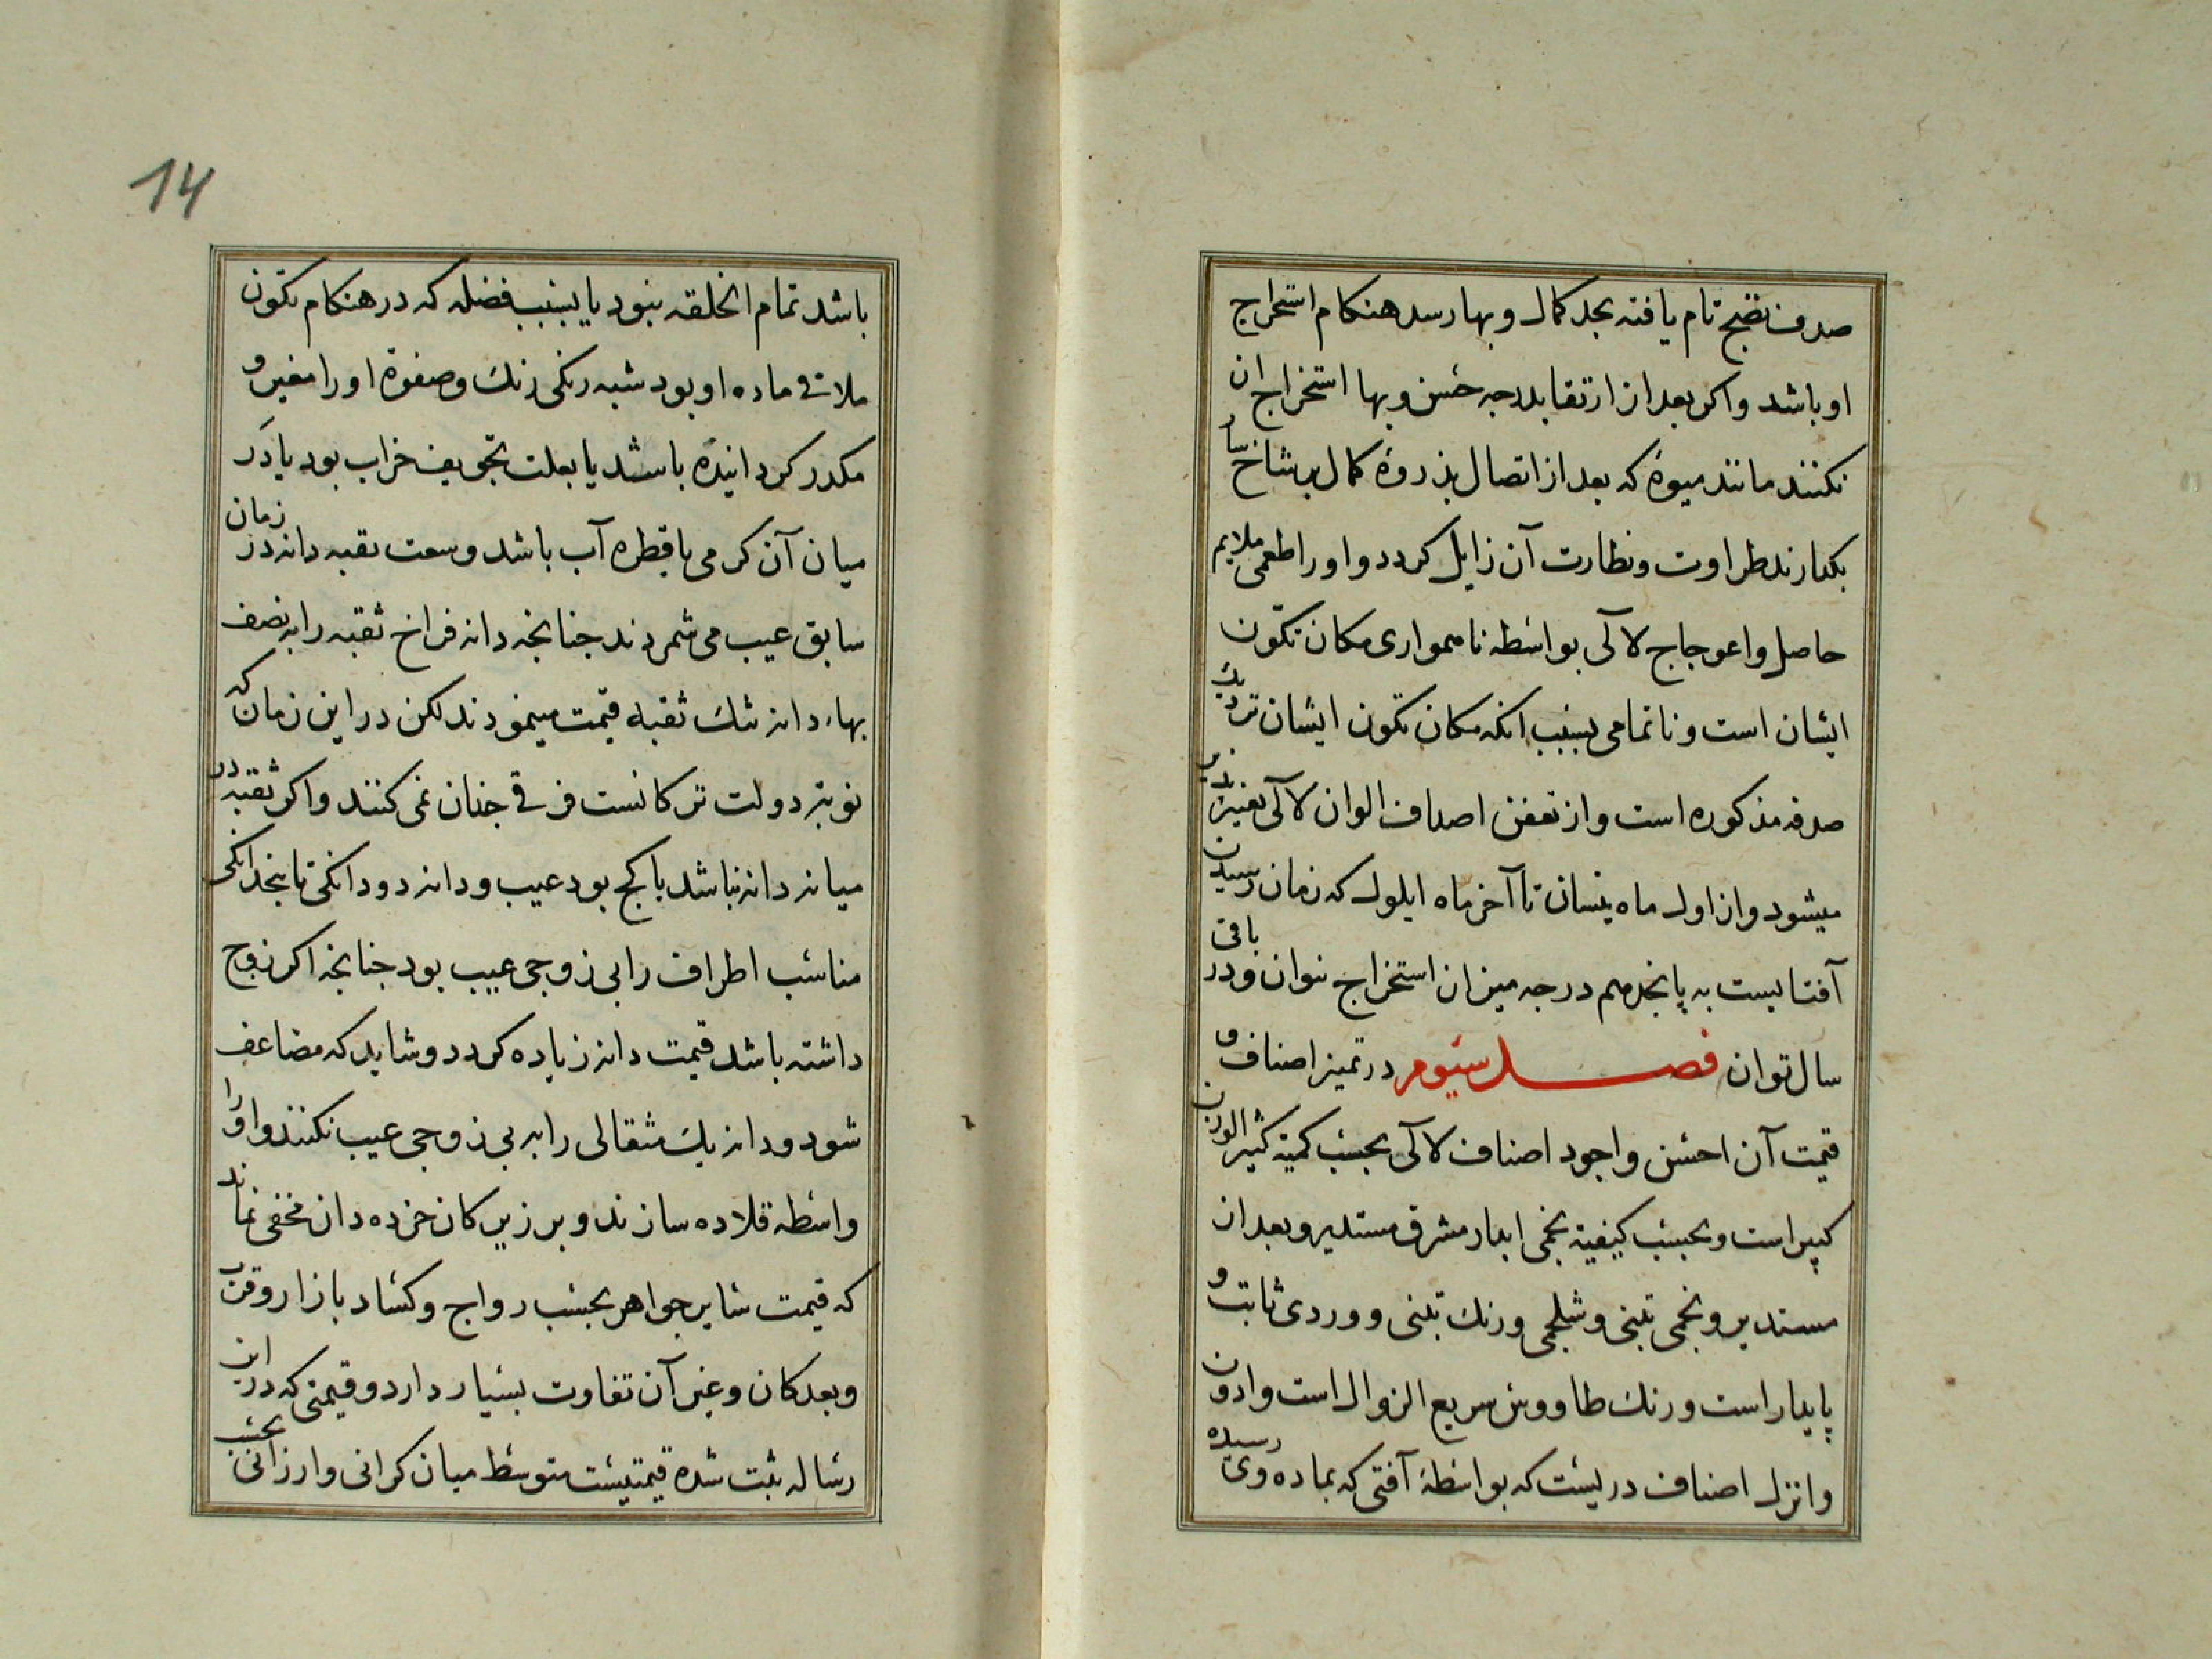 صدف نضج تام یافته بحد کمال و بها رسد هنکام استخراج
او باشد و اکر بعد از ارتقا بدرجه حسن و بها استخراج ان
نکنند مانند میوهٔ که بعد از اتصال بذروهٔ کمال بر شاخ سار
بکذارند طراوت و نظارت آن زایل کردد و او را طعمی ملایم
حاصل و اعوجاج لاآلی بواسطه ناهمواری مکان تکون
ایشان است و ناتمامی بسبب انکه مکان تکون ایشان نزدیک
صدفه مذکوره است و از تعفن اصداف الوان لاآلی تغیر پذیر
میشود و از اول ماه نیسان تا آخر ماه ایلول که زمان رسیدن
آفتابست به پانجدهم درجه میزان استخراج توان و در باقی
سال توان فصل سیوم در تمیز اصناف و
قیمت آن احسن و اجود اصناف لاآلی بحسب کمیة کثیر الوزن
کبیر است و بحسب کیفیة نجمی ابدار مشرق مستدیر و بعد ان
مستدیر و نجمی تبنی و شلجمی و رنک تبنی و وردی ثابت و
پایدار است و رنک طاووسی سریع الزوال است و ادون
و انزل اصناف دریست که بواسطهٔ آفتی که بماده وی رسیده
14
باشد تمام الخلقه نبود یا بسبب فضله که در هنکام تکون
ملاقی ماده او بود شبه رنکی زنک و صفوة او را مغیر و
مکدر کردانیده باشد یا بعلت تجویف خراب بود یا در
میان آن کرمی یا قطره آب باشد و سعت ثقبه دانه در زمان
سابق عیب می شمردند جنانجه دانه فراخ ثقبه را به نصف
بهاء دانه تنک ثقبه قیمت مینمودند لکن در این زمان که
نوبة دولت ترکانست فرقی جنان نمی کنند و اکر ثقبه در
میانه دانه نباشد یا کج بود عیب و دانه دو دانکی تا پنجدانکی
مناسب اطراف را بی زوجی عیب بود جنانجه اکر زوج
داشته باشد قیمت دانه زیاده کردد و شاید که مضاعف
شود و دانه یک مثقالی را به بی زوجی عیب نکنند و او را
واسطه قلاده سازند و بر زیرکان خرده دان مخفی نماند
که قیمت سایر جواهر بحسب رواج و کساد بازار و قرب
و بعد کان و غیر آن تفاوت بسیار دارد و قیمتی که در این
رساله ثبت شده قیمتیست متوسط میان کرانی و ارزانی بحسب